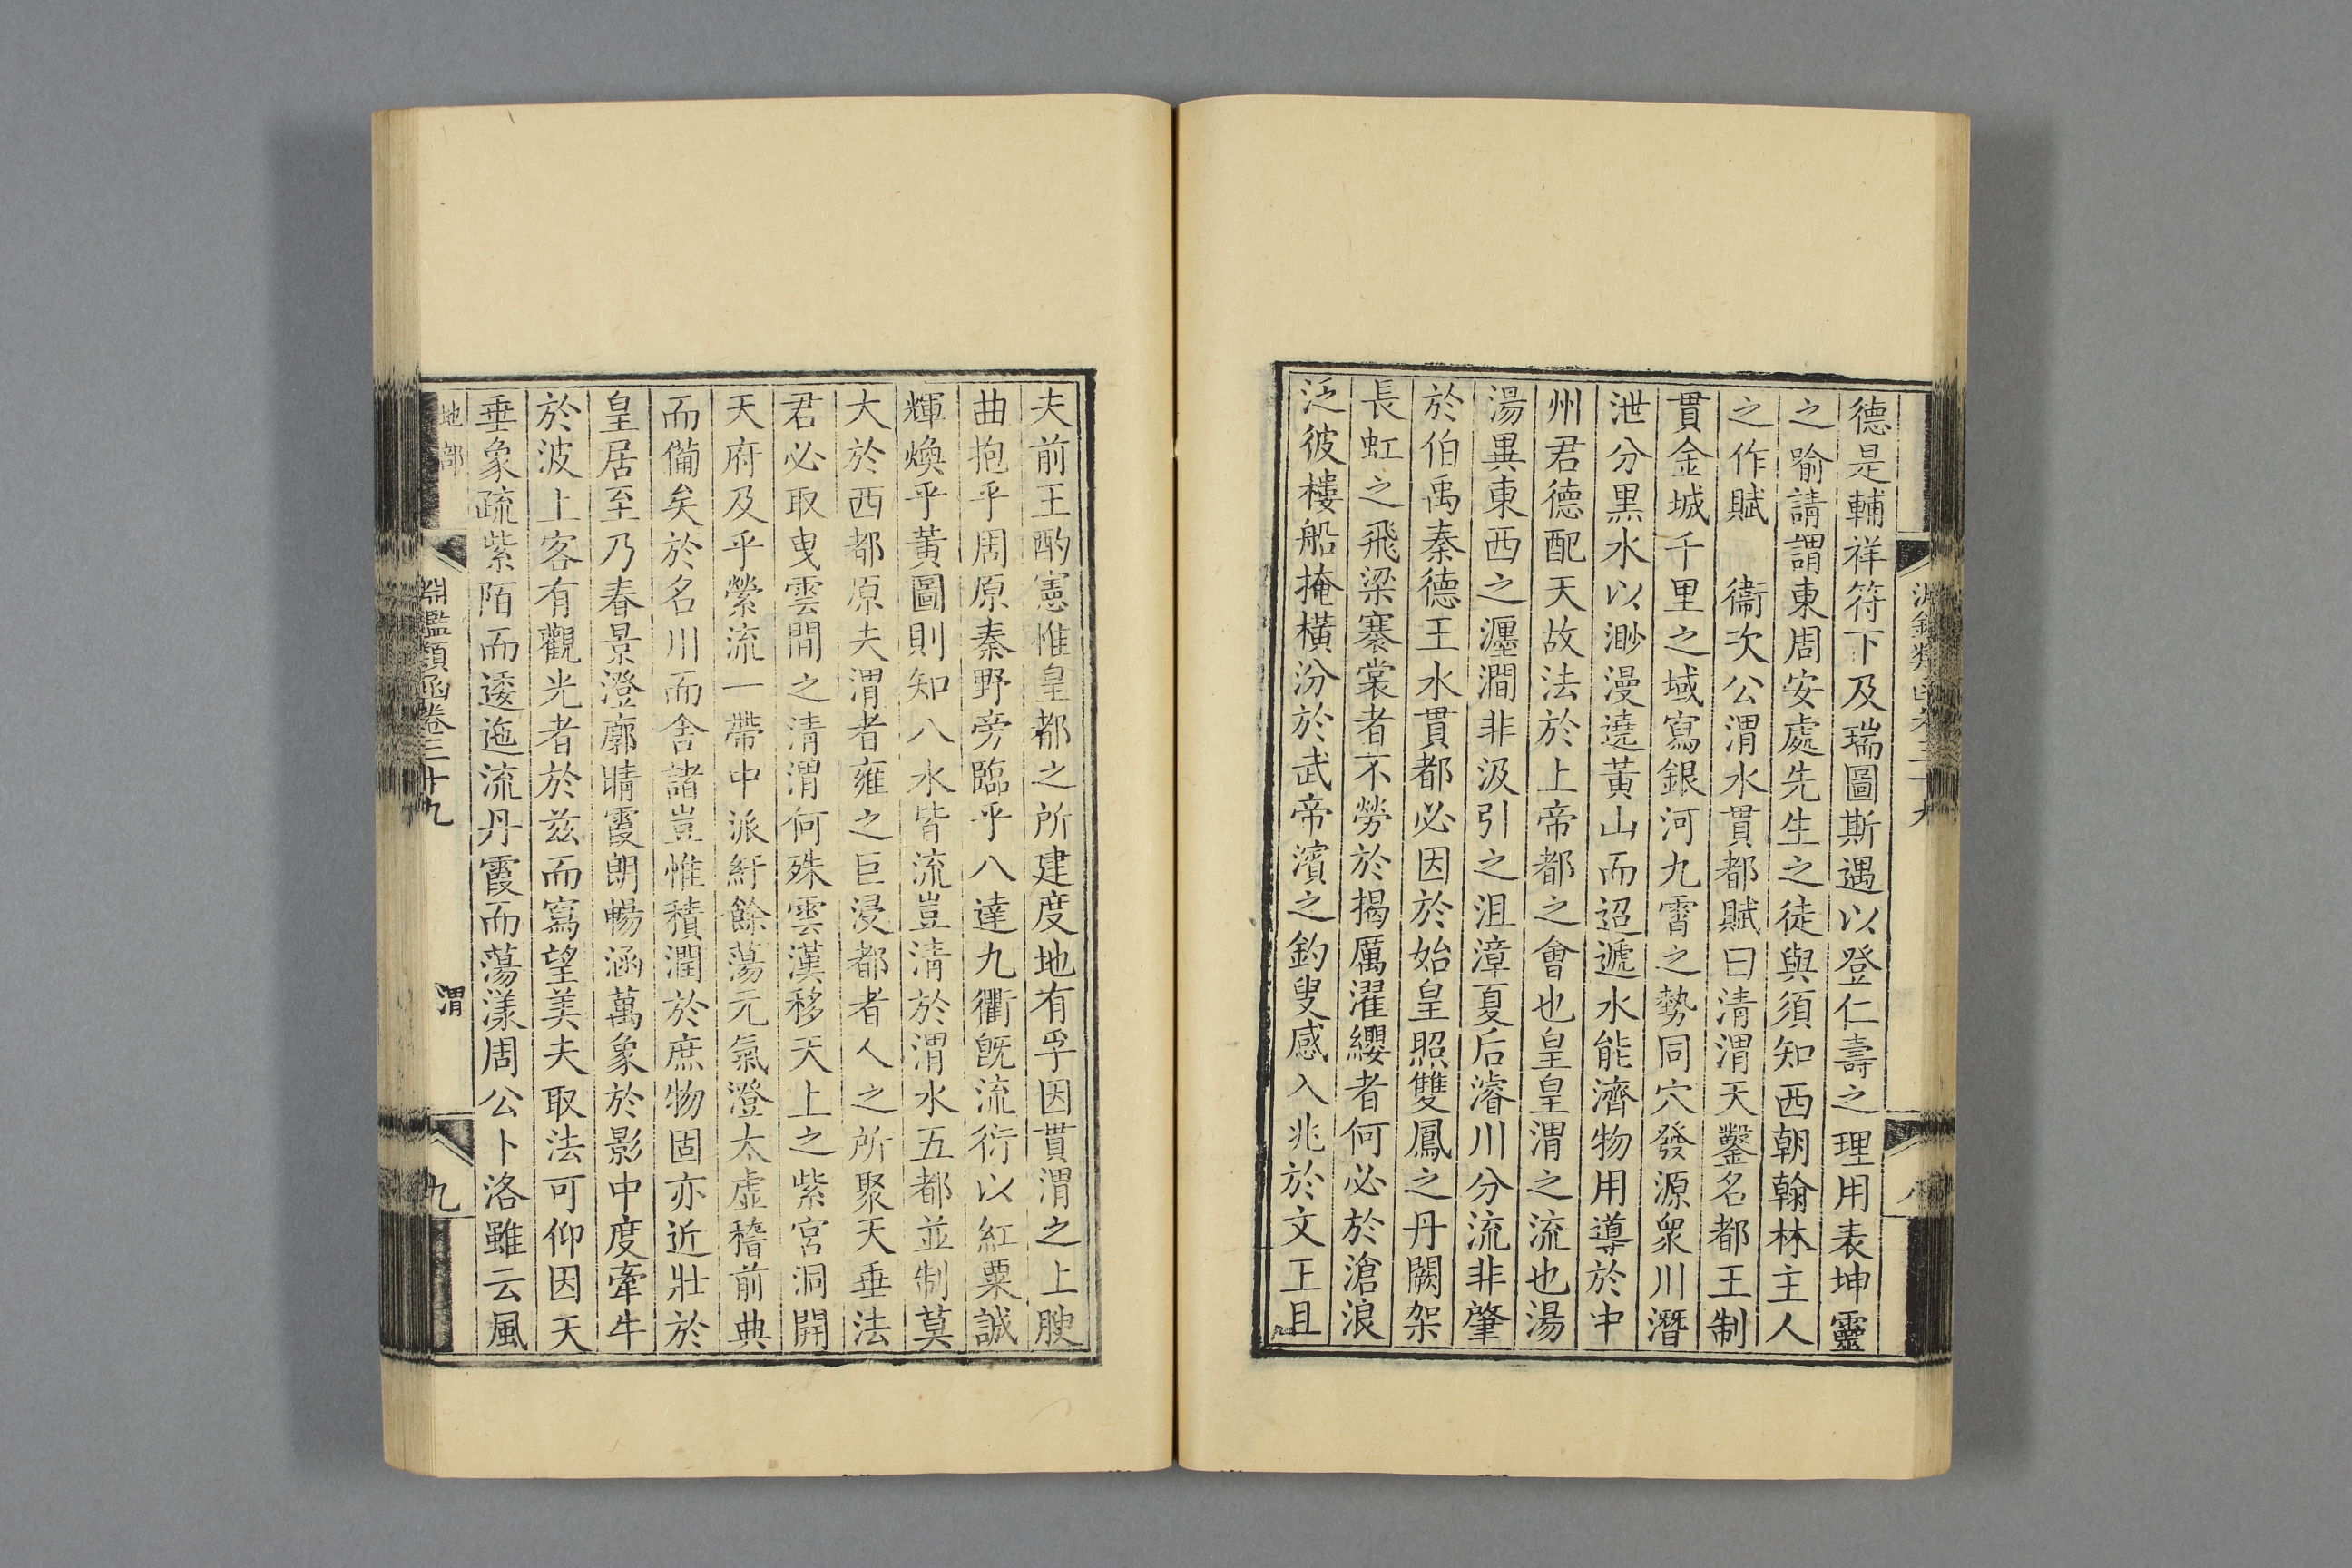 德是輔祥符下及瑞圖斯遇以登仁壽之理用表坤靈
之喻請謂東周安處先生之徒與須知西朝翰林主人
之作賦　衞次公渭水貫都賦曰清渭天鑿名都王制
貫金城千里之域寫銀河九霄之勢同穴發源衆川潛
泄分黒水以渺漫遶黃山而迢遞水能濟物用導於中
州君德配天故法於上帝都之會也皇皇渭之流也湯
湯異東西之瀍澗非汲引之沮漳夏后濬川分流非肇
於伯禹秦德王水貫都必因於始皇照雙鳳之丹闕架
長虹之飛梁褰裳者不勞於揭厲濯纓者何必於滄浪
泛彼樓船掩橫汾於武帝濱之釣叟感入兆於文王且
夫前王酌憲惟皇都之所建度地有孚因貫渭之上腴
曲抱乎周原秦野旁臨乎八達九衢旣流衍以紅粟誠
輝煥乎黃圖則知八水皆流豈清於渭水五都並制莫
大於西都原夫渭者雍之巨浸都者人之所聚天垂法
君必取曳雲間之清渭何殊雲漢移天上之紫宮洞開
天府及乎縈流一帶中派紆餘蕩元氣澄太虛稽前典
而備矣於名川而舍諸豈惟積潤於庶物固亦近壯於
皇居至乃春景澄廓晴霞朗暢涵萬象於影中度牽牛
於波上客有觀光者於茲而寫望美夫取法可仰因天
垂象疏紫陌而逶迤流丹霞而蕩漾周公卜洛雖云風
地部
淵鑑類函卷三十九
渭
九